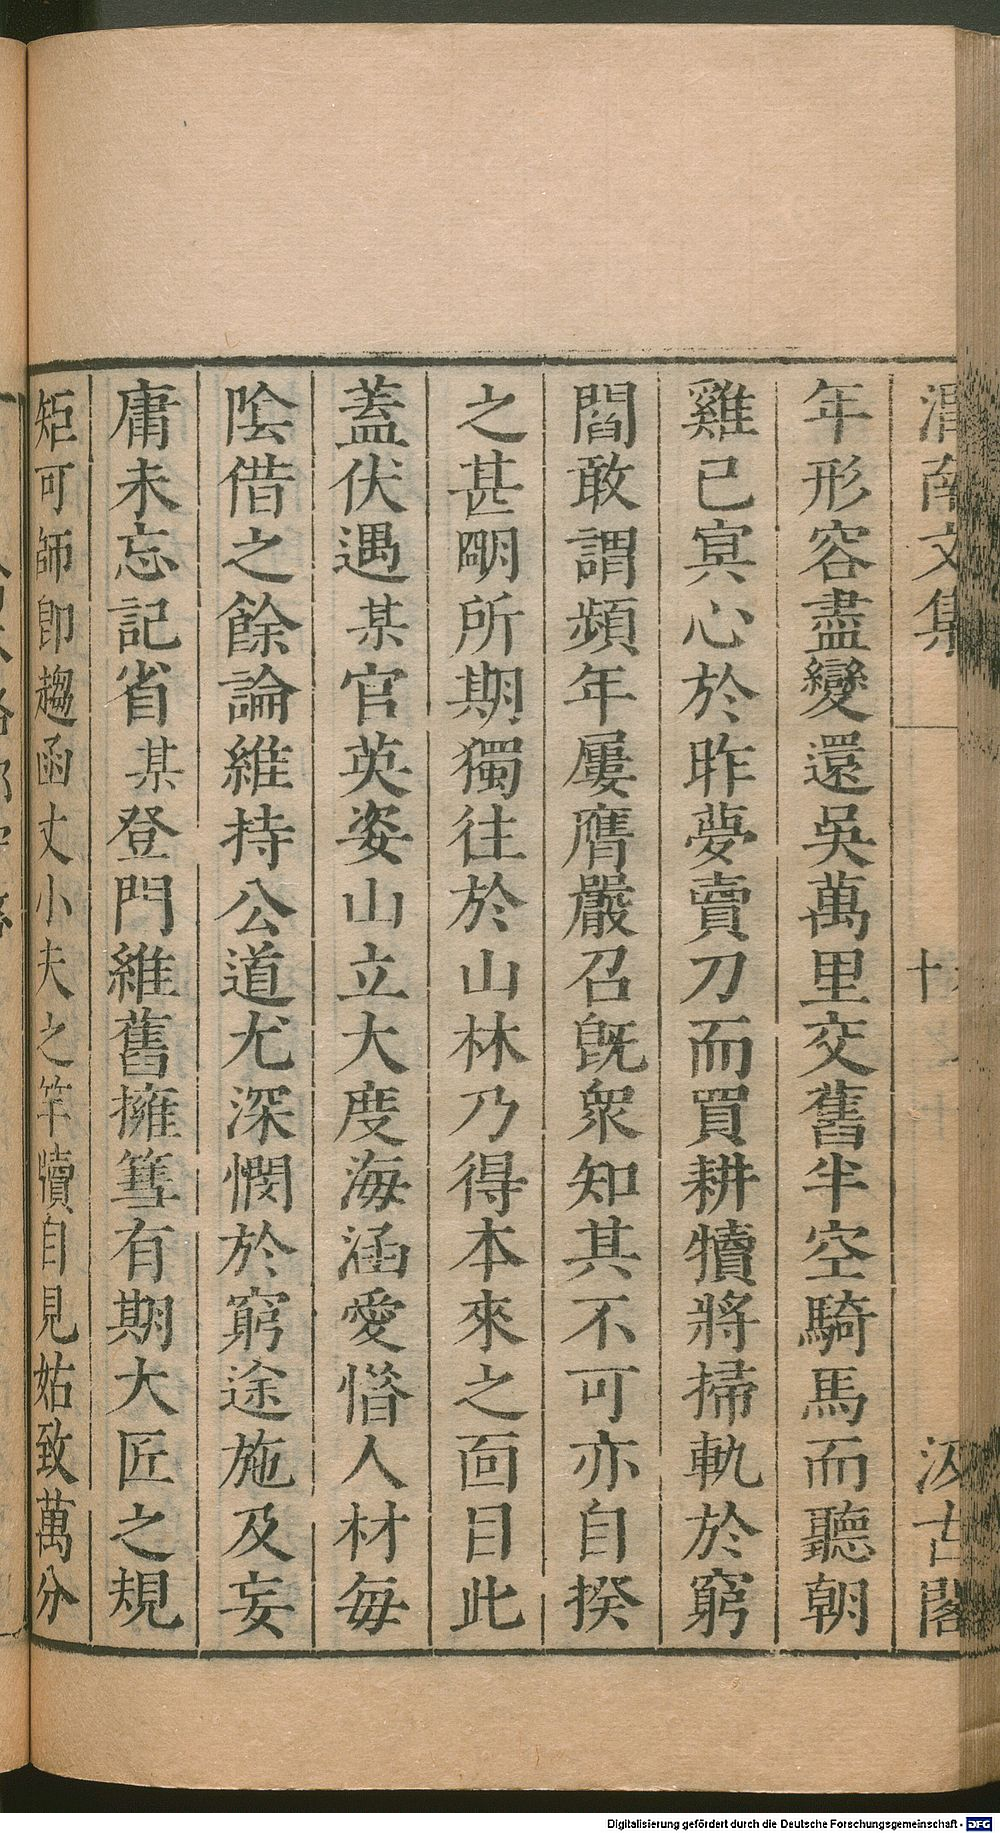 渭南文集 十 汲古閣
年形容盡變還吳萬里交舊半空騎馬而聽朝
雞已寘心於昨夢賣刀而買耕犢將掃軌於窮
閻敢謂頻年屢膺嚴召旣衆知其不可亦自揆
之甚朙所期獨往於山林乃得本來之面目此
蓋伏遇某官英姿山立大度海涵愛惜人材每
陰借之餘論維持公道尤深憫於窮途施及妄
庸未忘記省某登門維舊擁篲有期大匠之規
矩可師卽趨函丈小夫之竿牘自見姑致萬分
Digitalisierung gefördert durch die Deutsche Forschungsgemeinschaft - DFG